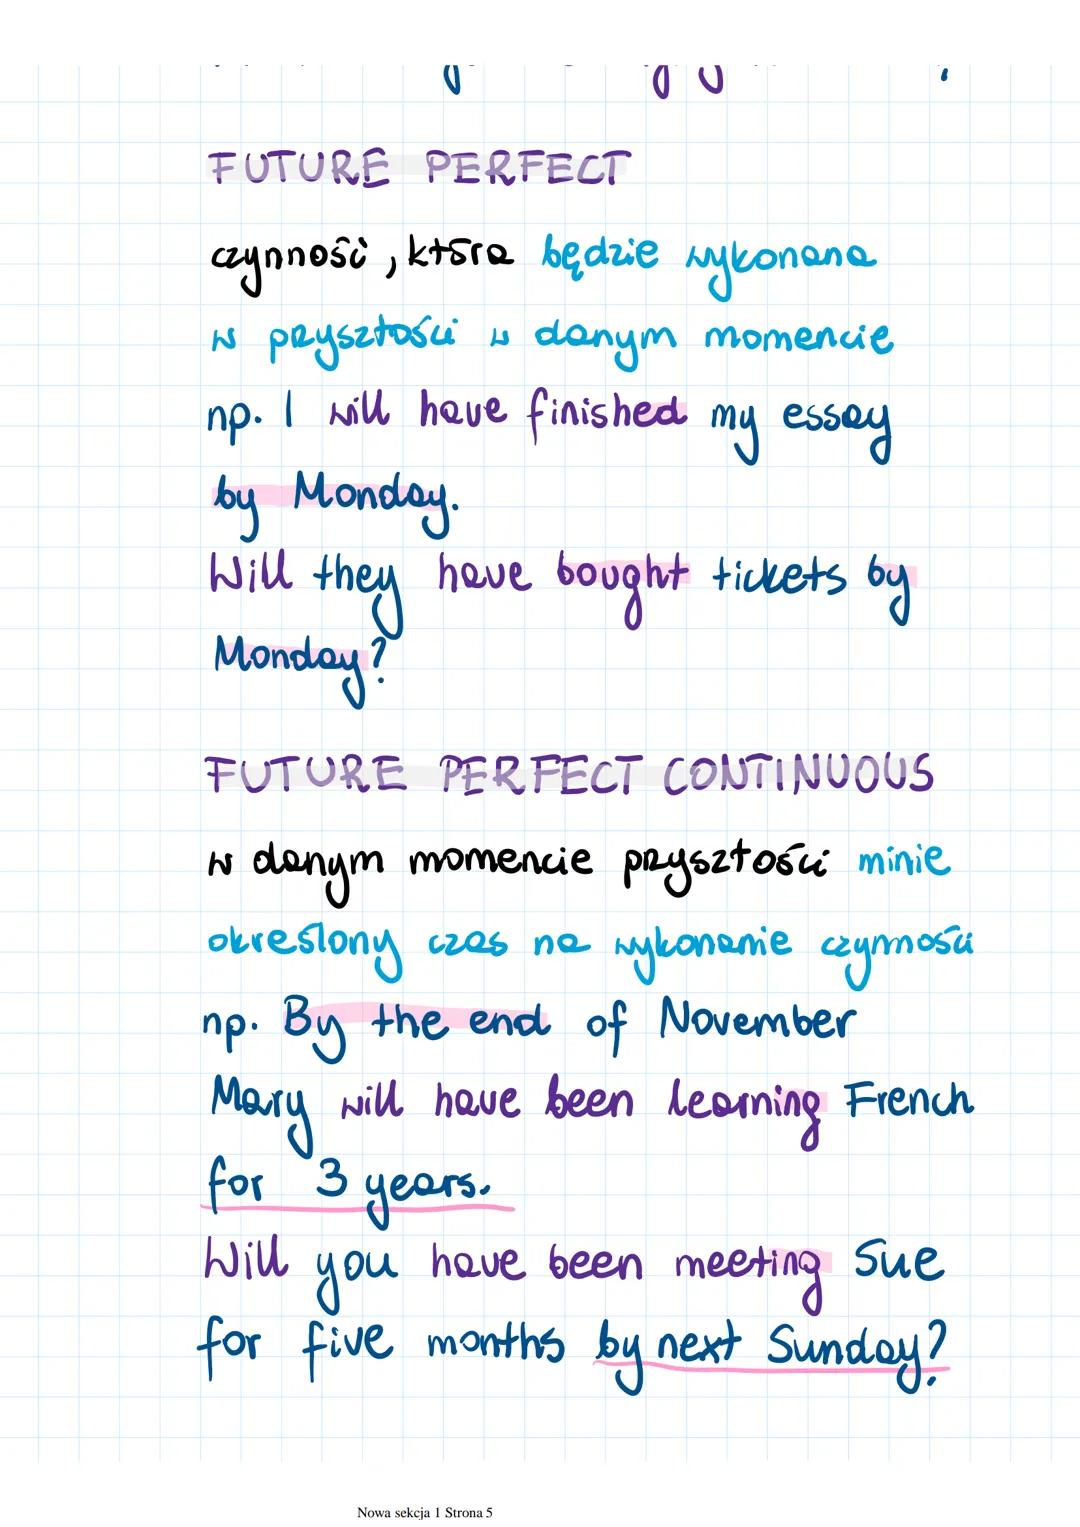 FUTURE PERFECT
czynność, która będzie wykonana
w przyszłości w danym momencie
np. I will have finished my essay
by Monday.
Will they have bought tickets by
Monday?
FUTURE PERFECT CONTINUOUS
w danym momencie przyszłości minie
określony czas na wykonanie czynności
np. By the end of November
Mary will have been learning French
for 3 years.
Will you have been meeting Sue
for five months by next Sunday?
Nowa sekcja 1 Strona 5